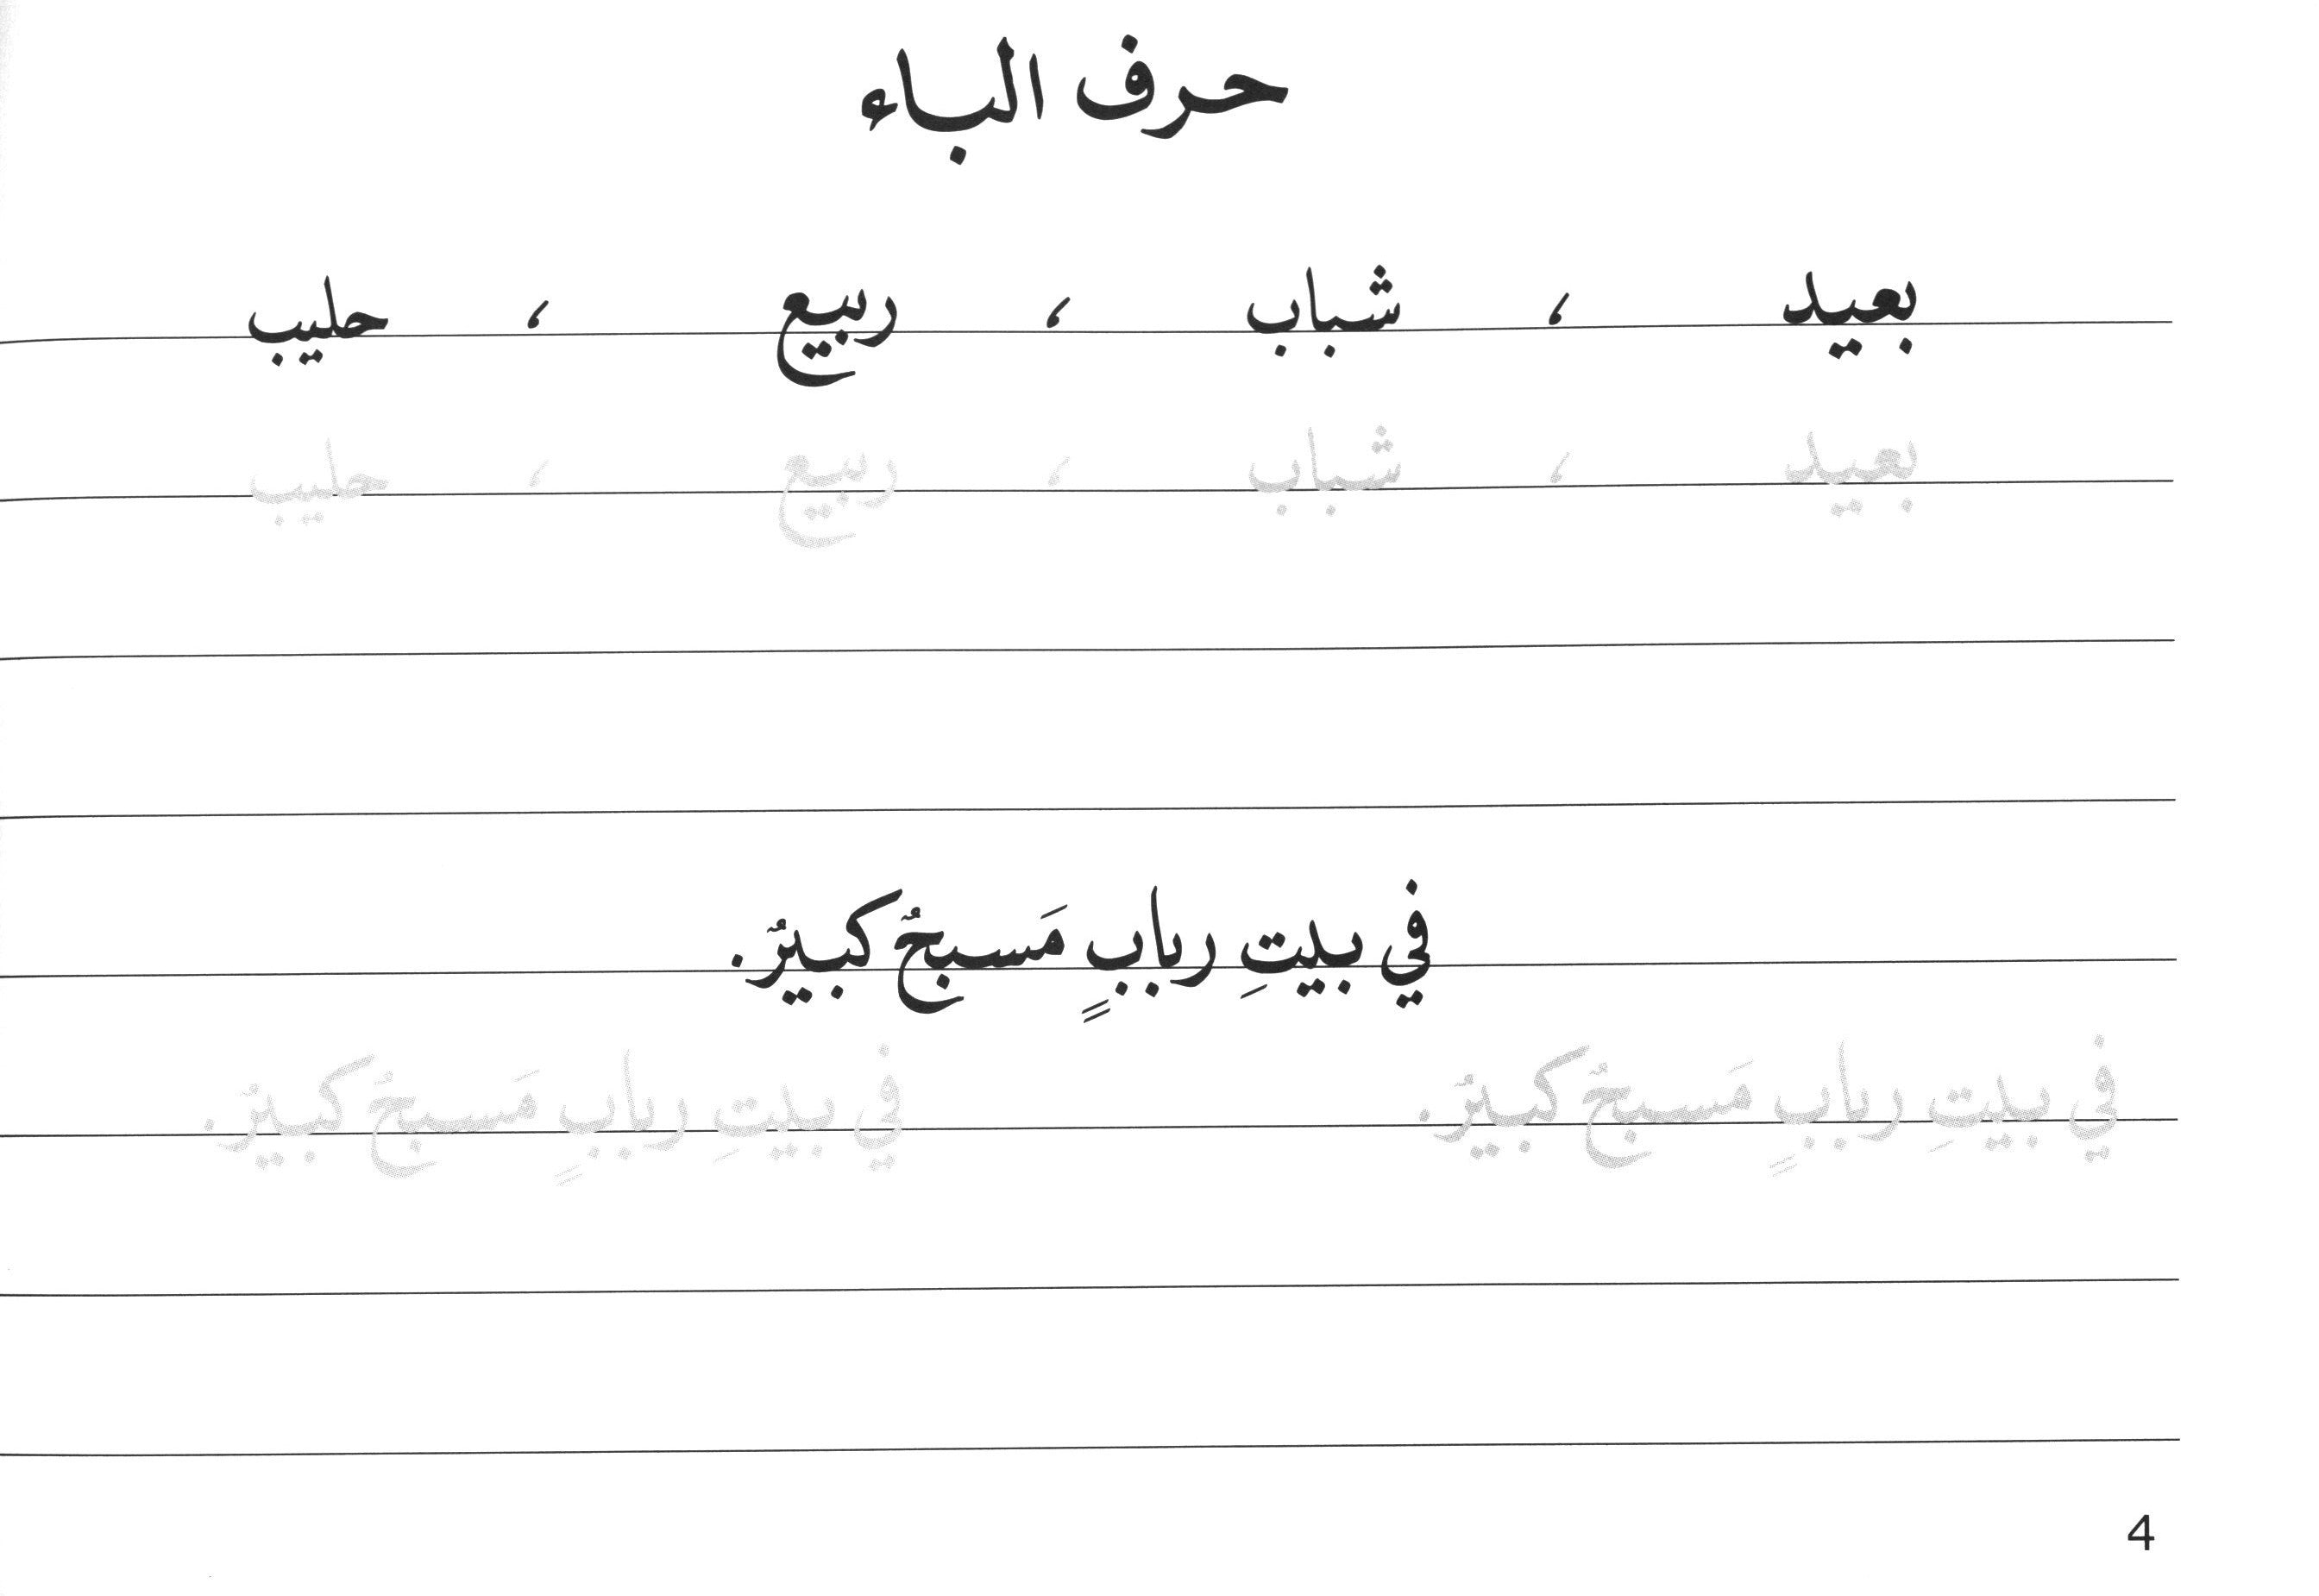 حرف الباء
بعيد ، شباب ، ربيع ، حليب
بعيد ، شباب ، ربيع ، حليب
في بيتِ ربابٍ مَسبحٌ كبيرٌ.
في بيتِ ربابٍ مَسبحٌ كبيرٌ. في بيتِ ربابٍ مَسبحٌ كبيرٌ.
4